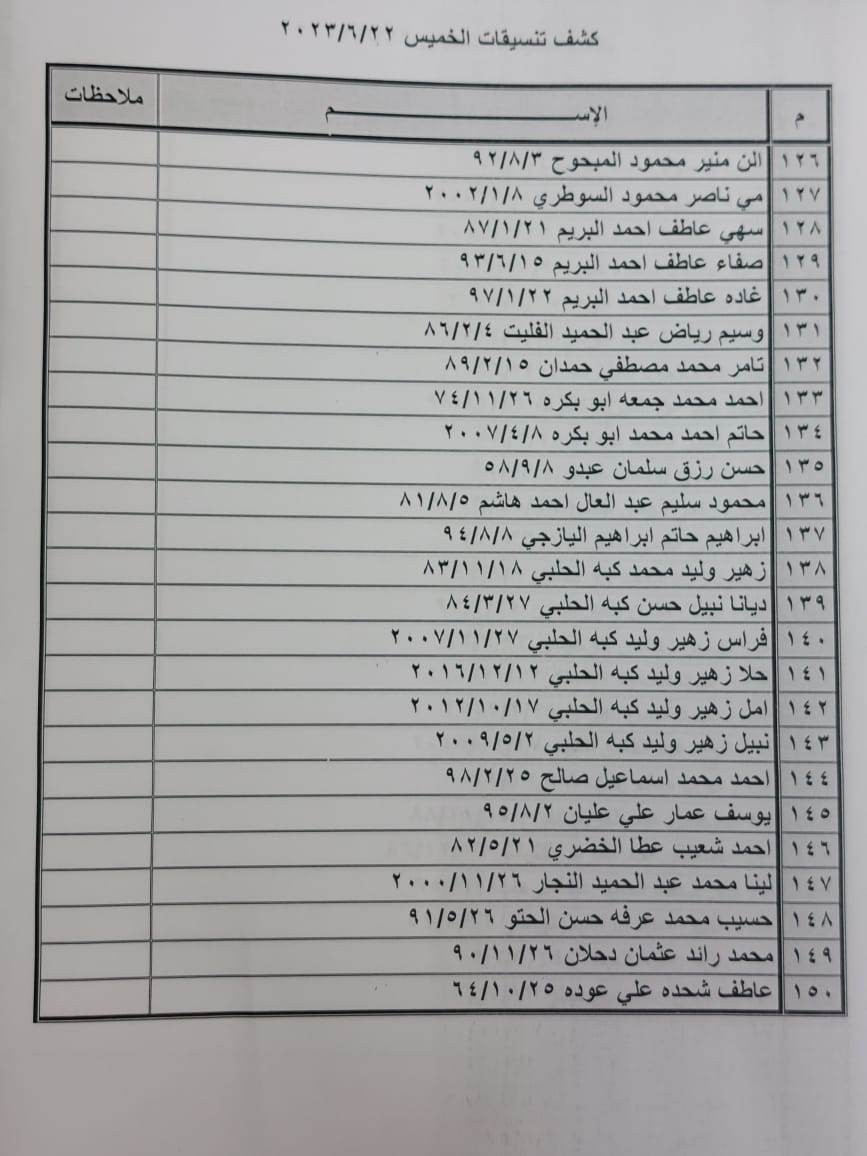 كشف تنسيقات الخميس ٢٠٢٣/٦/٢٢
م الإســـــم ملاحظات
١٢٦ الن منير محمود المبحوح ٩٢/٨/٣
١٢٧ مي ناصر محمود السوطري ٢٠٠٢/١/٨
١٢٨ سهي عاطف احمد البريم ٨٧/١/٢١
١٢٩ صفاء عاطف احمد البريم ٩٣/٦/١٥
١٣٠ غاده عاطف احمد البريم ٩٧/١/٢٢
١٣١ وسيم رياض عبد الحميد الفليت ٨٦/٢/٤
١٣٢ تامر محمد مصطفي حمدان ٨٩/٢/١٥
١٣٣ احمد محمد جمعه ابو بكره ٧٤/١١/٢٦
١٣٤ حاتم احمد محمد ابو بكره ٢٠٠٧/٤/٨
١٣٥ حسن رزق سلمان عبدو ٥٨/٩/٨
١٣٦ محمود سليم عبد العال احمد هاشم ٨١/٨/٥
١٣٧ ابراهيم حاتم ابراهيم اليازجي ٩٤/٨/٨
١٣٨ زهير وليد محمد كبه الحلبي ٨٣/١١/١٨
١٣٩ ديانا نبيل حسن كبه الحلبي ٨٤/٣/٢٧
١٤٠ فراس زهير وليد كبه الحلبي ٢٠٠٧/١١/٢٧
١٤١ حلا زهير وليد كبه الحلبي ٢٠١٦/١٢/١٢
١٤٢ امل زهير وليد كبه الحلبي ٢٠١٢/١٠/١٧
١٤٣ نبيل زهير وليد كبه الحلبي ٢٠٠٩/٥/٢
١٤٤ احمد محمد اسماعيل صالح ٩٨/٢/٢٥
١٤٥ يوسف عمار علي عليان ٩٥/٨/٢
١٤٦ احمد شعيب عطا الخضري ٨٢/٥/٢١
١٤٧ لينا محمد عبد الحميد النجار ٢٠٠٠/١١/٢٦
١٤٨ حسيب محمد عرفه حسن الحتو ٩١/٥/٢٦
١٤٩ محمد رائد عثمان دحلان ٩٠/١١/٢٦
١٥٠ عاطف شحده علي عوده ٦٤/١٠/٢٥